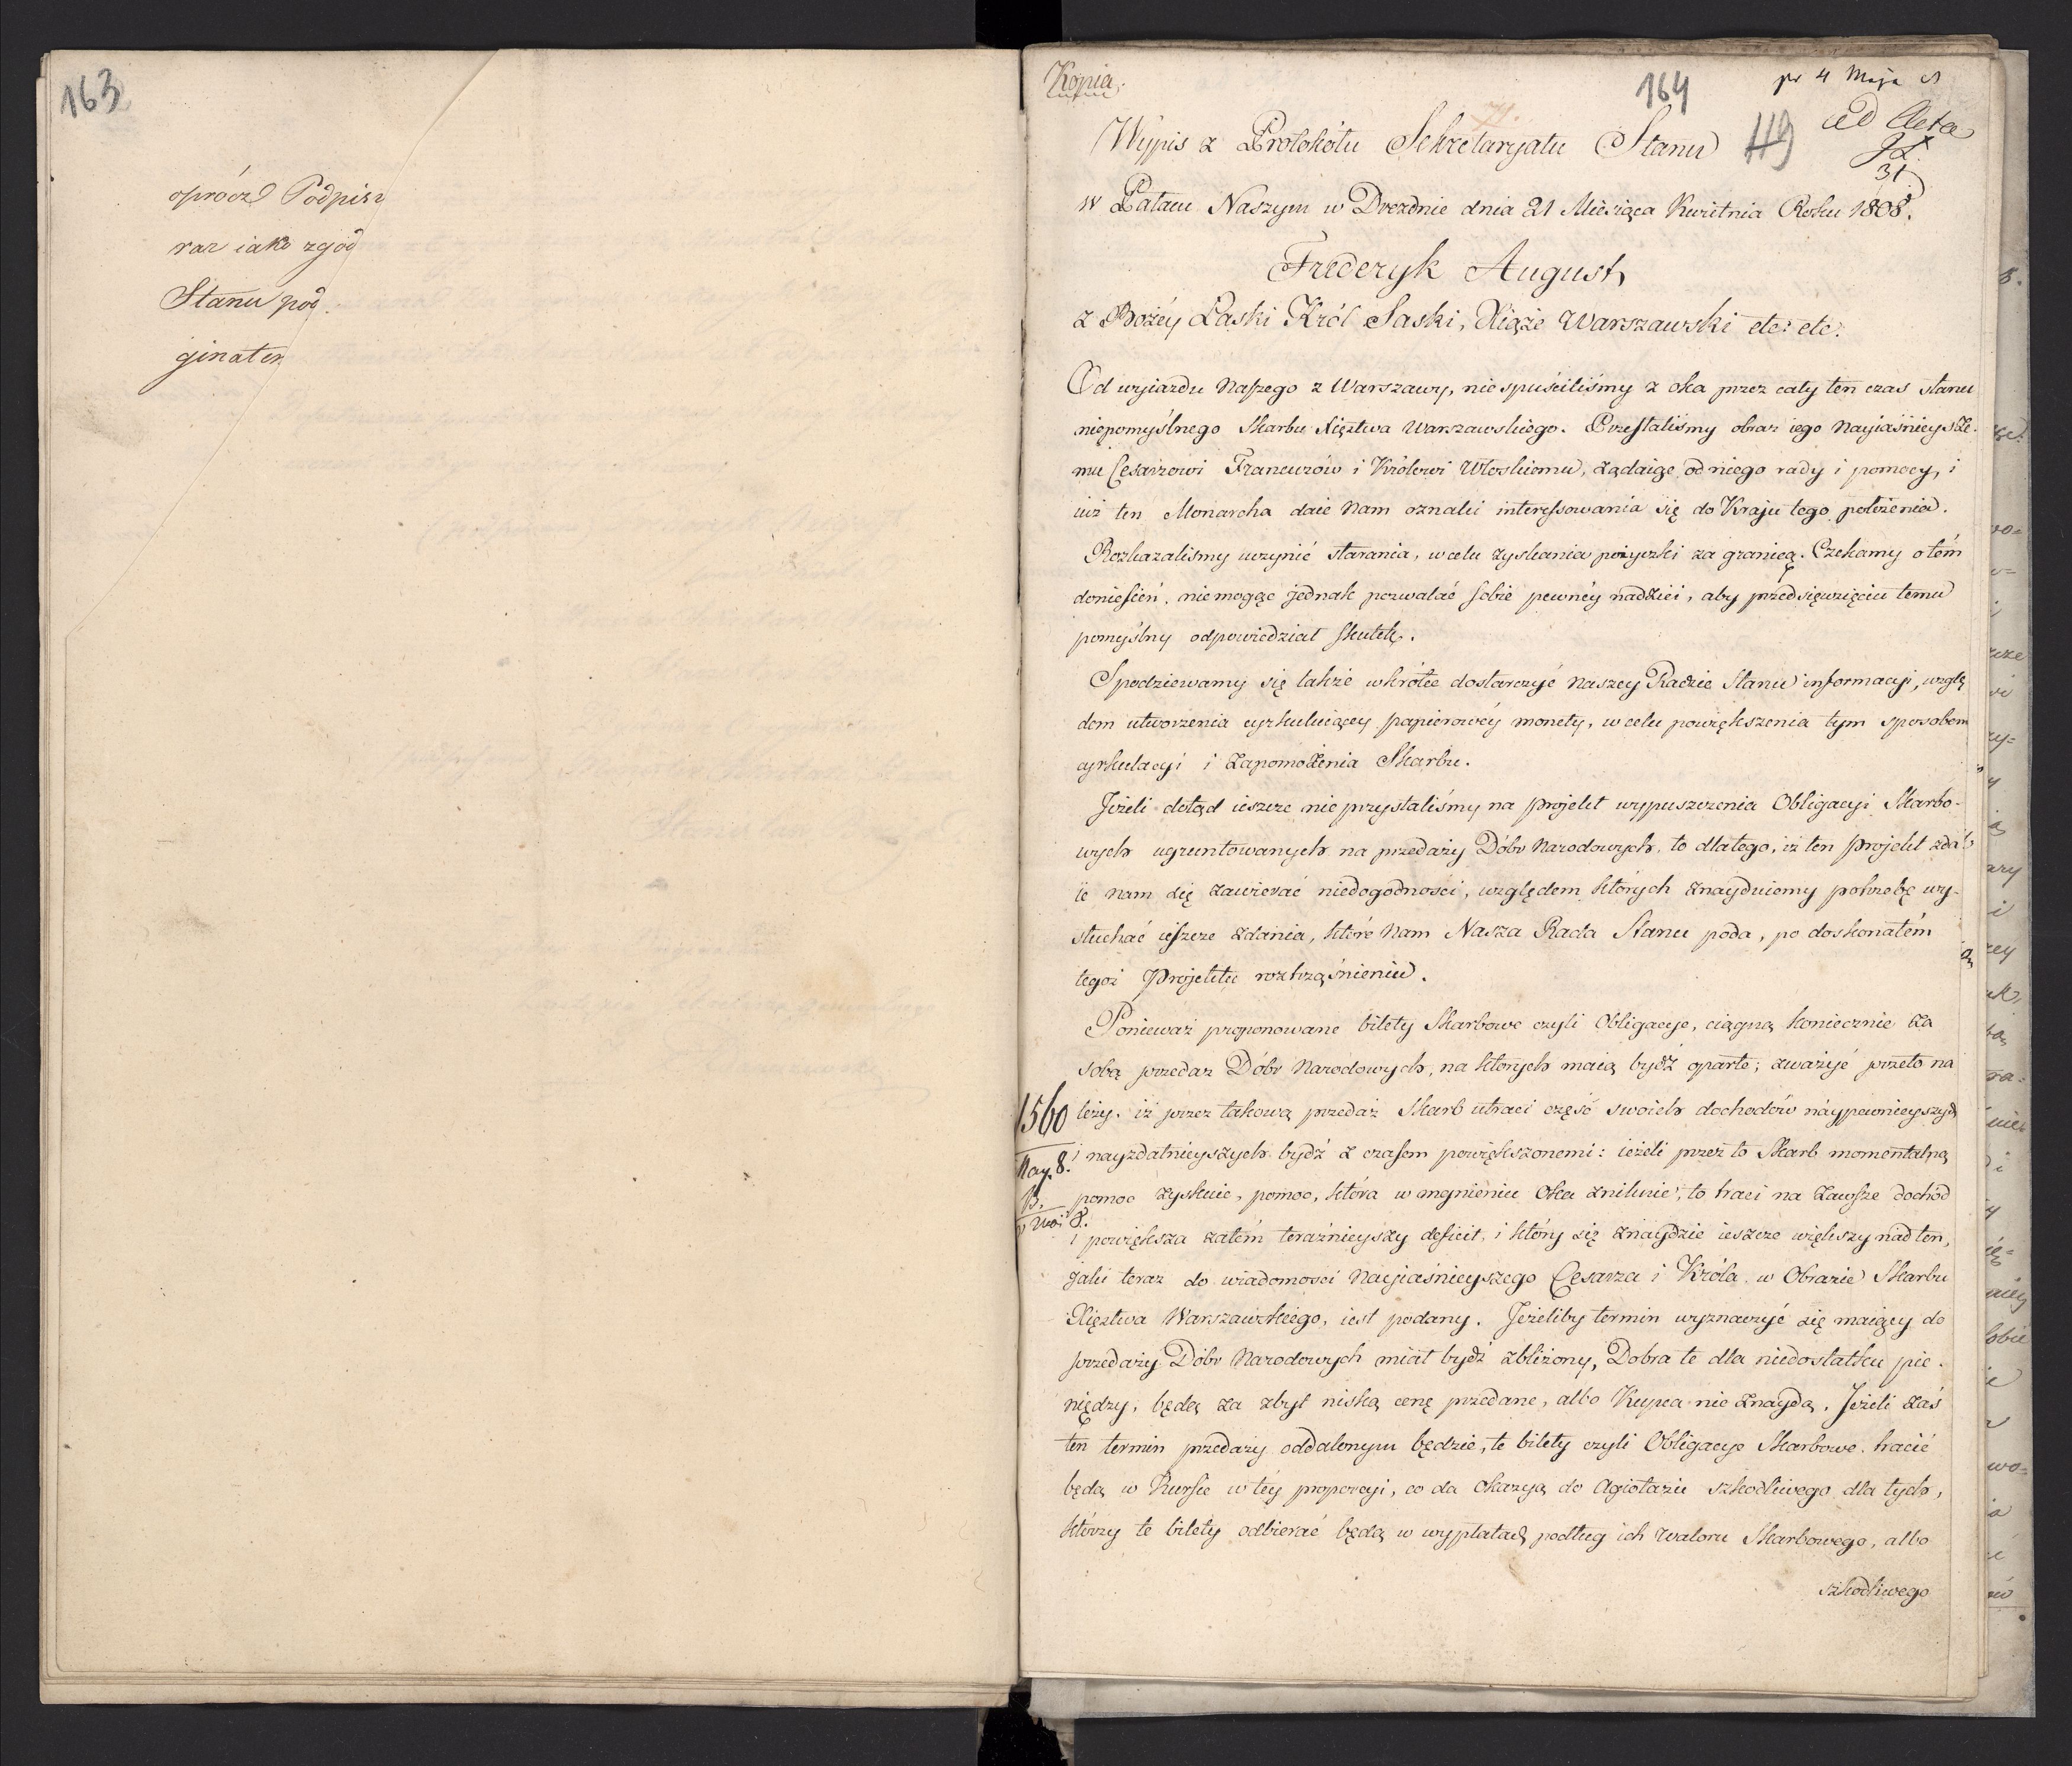 163
oprócz Podpisa
raz iako zgod
Stanu pod
ginałem
Kopia.
164
pr 4 Maja
ad Acta
31
Wypis z Protokółu Sekretaryatu Stanu
119
w Pałacu Naszym w Dreznie dnia 21 Miesiąca Kwietnia Roku 1808.
Frederyk August
z Bożéy Łaski Król Saski, Xiąże Warszawski etc: etc.
Od wyiazdu Naszego z Warszawy, nie spuściliśmy z oka przez cały ten czas stanu
niepomyślnego Skarbu Xięztwa Warszawskiego. Przesłaliśmy obraz iego Nayiaśnieysze-
mu Cesarzowi Francuzów i Królowi Włoskiemu, żądaiąc od niego rady i pomocy, i
iuż ten Monarcha daie Nam oznaki interessowania się do Kraju tego położenia.
Rozkazaliśmy uczynić starania, w celu zyskania pożyczki za granicą. Czekamy o tém
doniesień, niemogąc jednak pozwalać sobie pewnéy nadziei, aby przedsięwzięciu temu
pomyślny odpowiedział skutek.
Spodziewamy się także wkrótce dostarczyć Naszey Radzie Stanu informacyi, wzglę
dem utworzenia cyrkuluiącey papierowéy monety, w celu powiększenia tym sposobem
cyrkulacyi i zapomożenia Skarbu.
Jeżeli dotąd ieszcze nie przystaliśmy na projekt wypuszczenia Obligacyi Skarbo-
wych ugruntowanych na przedaży Dóbr Narodowych, to dlatego, iż ten projekt zda-
ie nam się zawierać niedogodności, względem których znayduiemy potrzebę wy-
słuchać ieszcze zdania, które Nam Nasza Rada Stanu poda, po doskonałém
tegoż Projektu roztrząśnieniu.
Ponieważ proponowane bilety Skarbowe czyli Obligacye, ciągną koniecznie za
sobą przedaż Dóbr Narodowych, na których maią bydź oparte; zważyć przeto na
1560
leży, iż przez takową przedaż Skarb utraci część swoich dochodów naypewnieyszych
May. 8.
i nayzdatnieyszych bydź z czasem powiększonemi: ieżeli przez to Skarb momentalną
pomoc zyskuie, pomoc, która w mgnieniu oka zniknie, to traci na zawsze dochód
i powiększa zatém teraźnieyszy deficit, i który się znaydzie ieszcze większy nad ten,
jaki teraz do wiadomości Nayiaśnieyszego Cesarza i Króla w Obrazie Skarbu
Xięztwa Warszawskiego, iest podany. Jeżeliby termin wyznaczyć się maiący do
przedaży Dóbr Narodowych miał bydź zbliżony, Dobra te dla niedostatku pie-
niędzy, będą za zbyt niską cenę przedane, albo Kupca nie znaydą. Jeżeli zaś
ten termin przedaży oddalonym będzie, te bilety czyli Obligacye Skarbowe, tracić
będą w Kursie w téy proporcyi, co da okazyą do Agiotażu szkodliwego dla tych,
którzy te bilety odbierać będą w wypłatach podług ich waloru Skarbowego, albo
szkodliwego